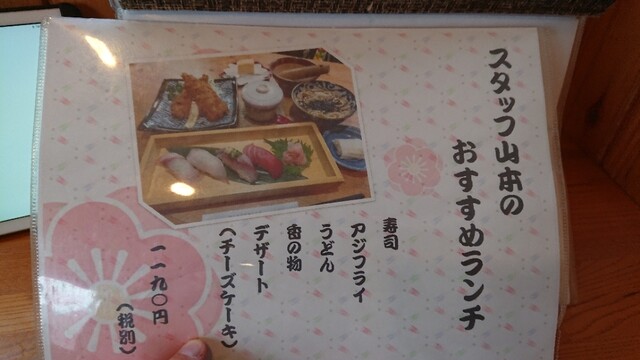 スタッフ山本の
おすすめランチ
寿司
アジフライ
うどん
香の物
デザート
（チーズケーキ）
一一九〇円
（税別）